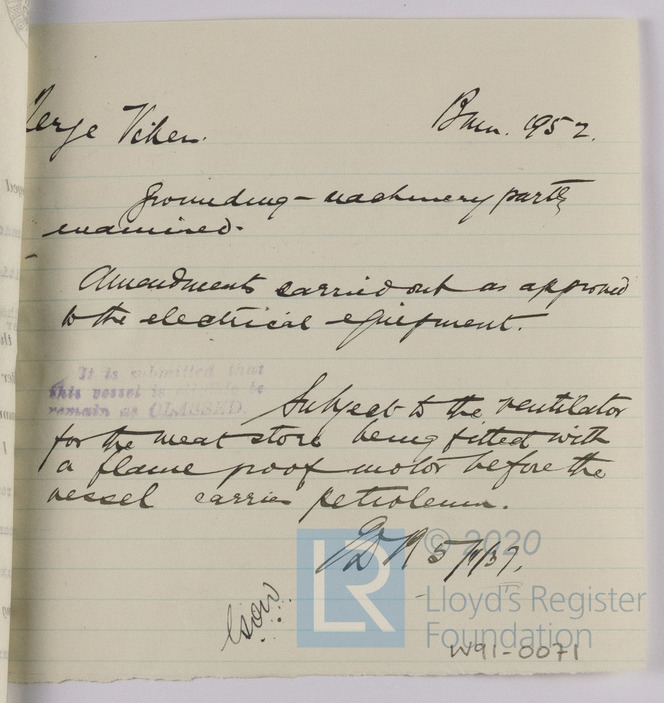 Terje Viken. Bmn. 1952.
Grounding - machinery partly
examined.
Amendments carried out as approved
to the electrical equipment.
It is submitted that
this vessel is eligible to
remain as CLASSED.
Subject to the ventilator
for the meat store being fitted with
a flame proof motor before the
vessel carries petroleum.
5/1/37.
LR
© 2020
Lloyd's Register
Foundation
W91-0071